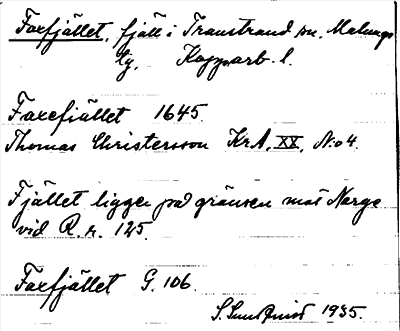 Faxfjället, fjäll i Transtrand sn. Malungs
tg, Kopparb. l.
Faxefiället 1645.
Thomas Christersson KrA, XX, N:o 4.
Fjället ligger på gränsen mot Norge
vid R. r. 125.
Faxfjället G. 106.
S. Sundquist 1935.